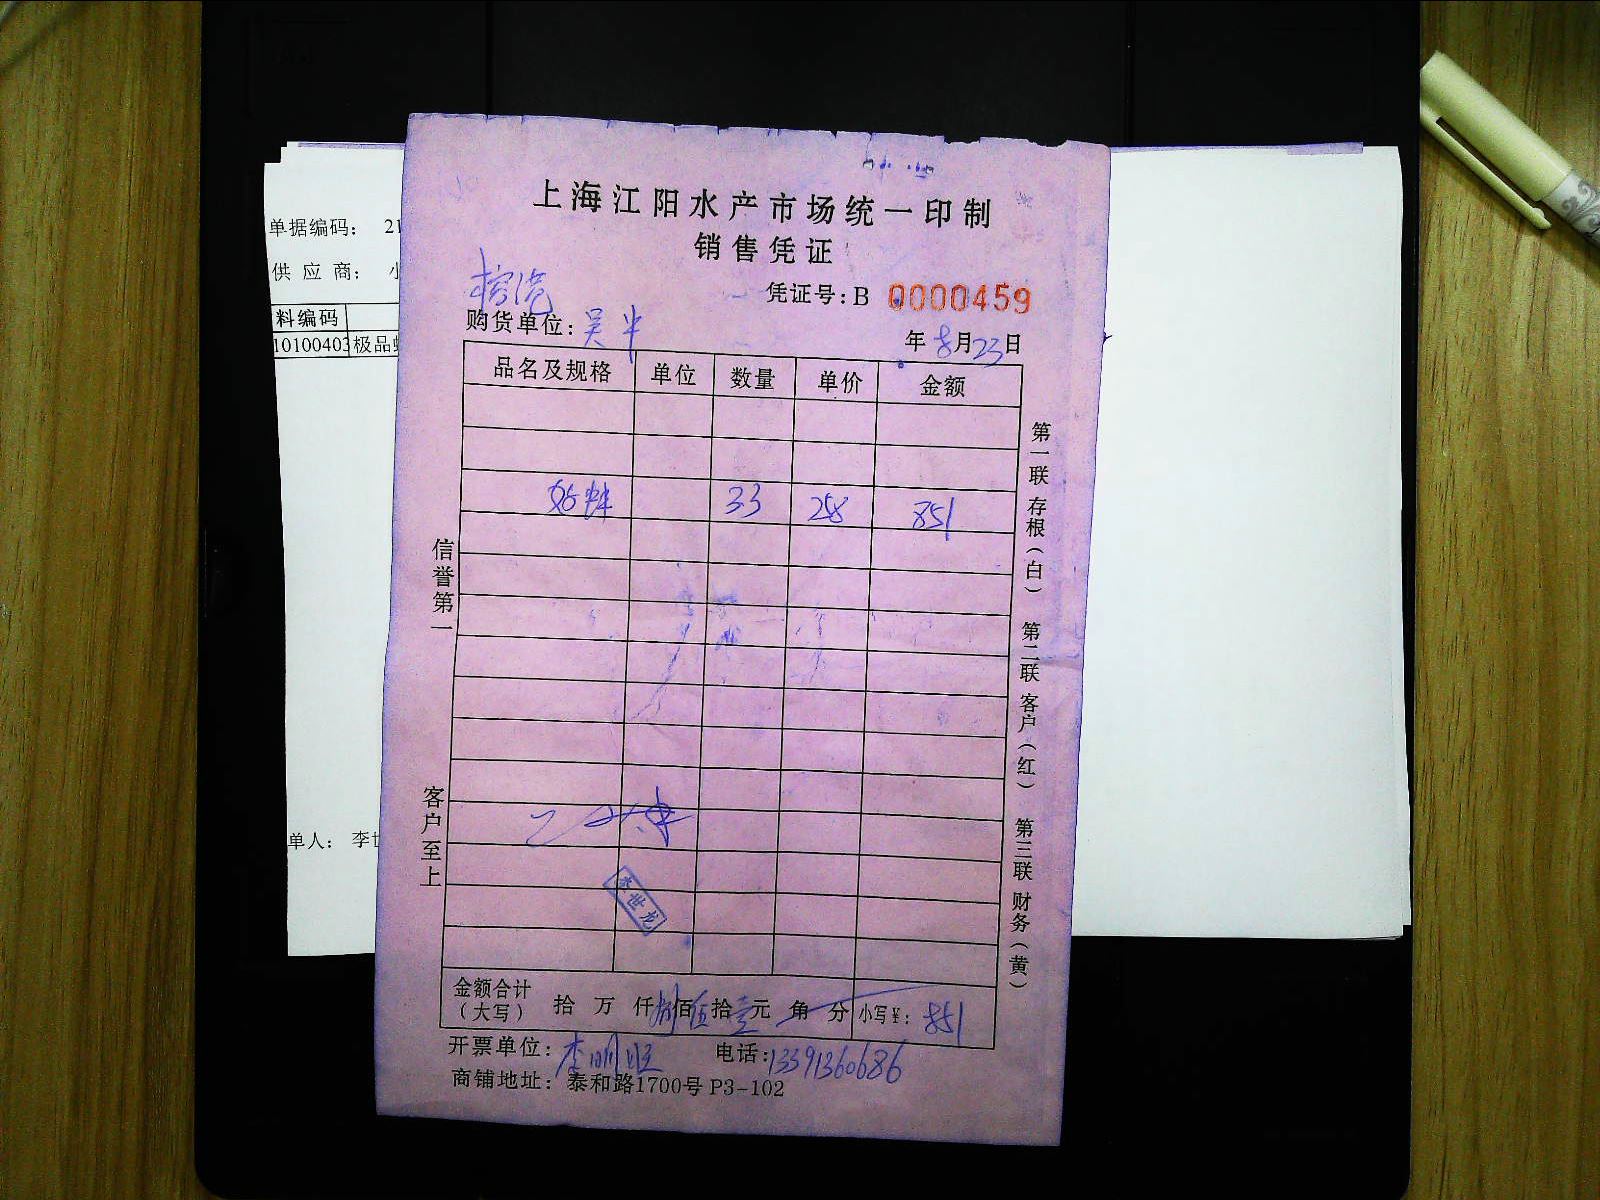 上海江阳水产市场统一印制
销售凭证
凭证号:B 0000459
购货单位: 吴
年 8月23日
品名及规格 单位 数量 单价 金额
33 258 851
金额合计(大写) 拾 万 仟 捌佰伍拾壹元 角 分 小写¥: 851
开票单位: 李明 电话:13391360686
商铺地址: 泰和路1700号 P3-102
信誉第一
客户至上
第一联 存根(白) 第二联 客户(红) 第三联 财务(黄)
李世龙
单据编码: 21
供应商: 小
料编码
10100403 极品
单人: 李世